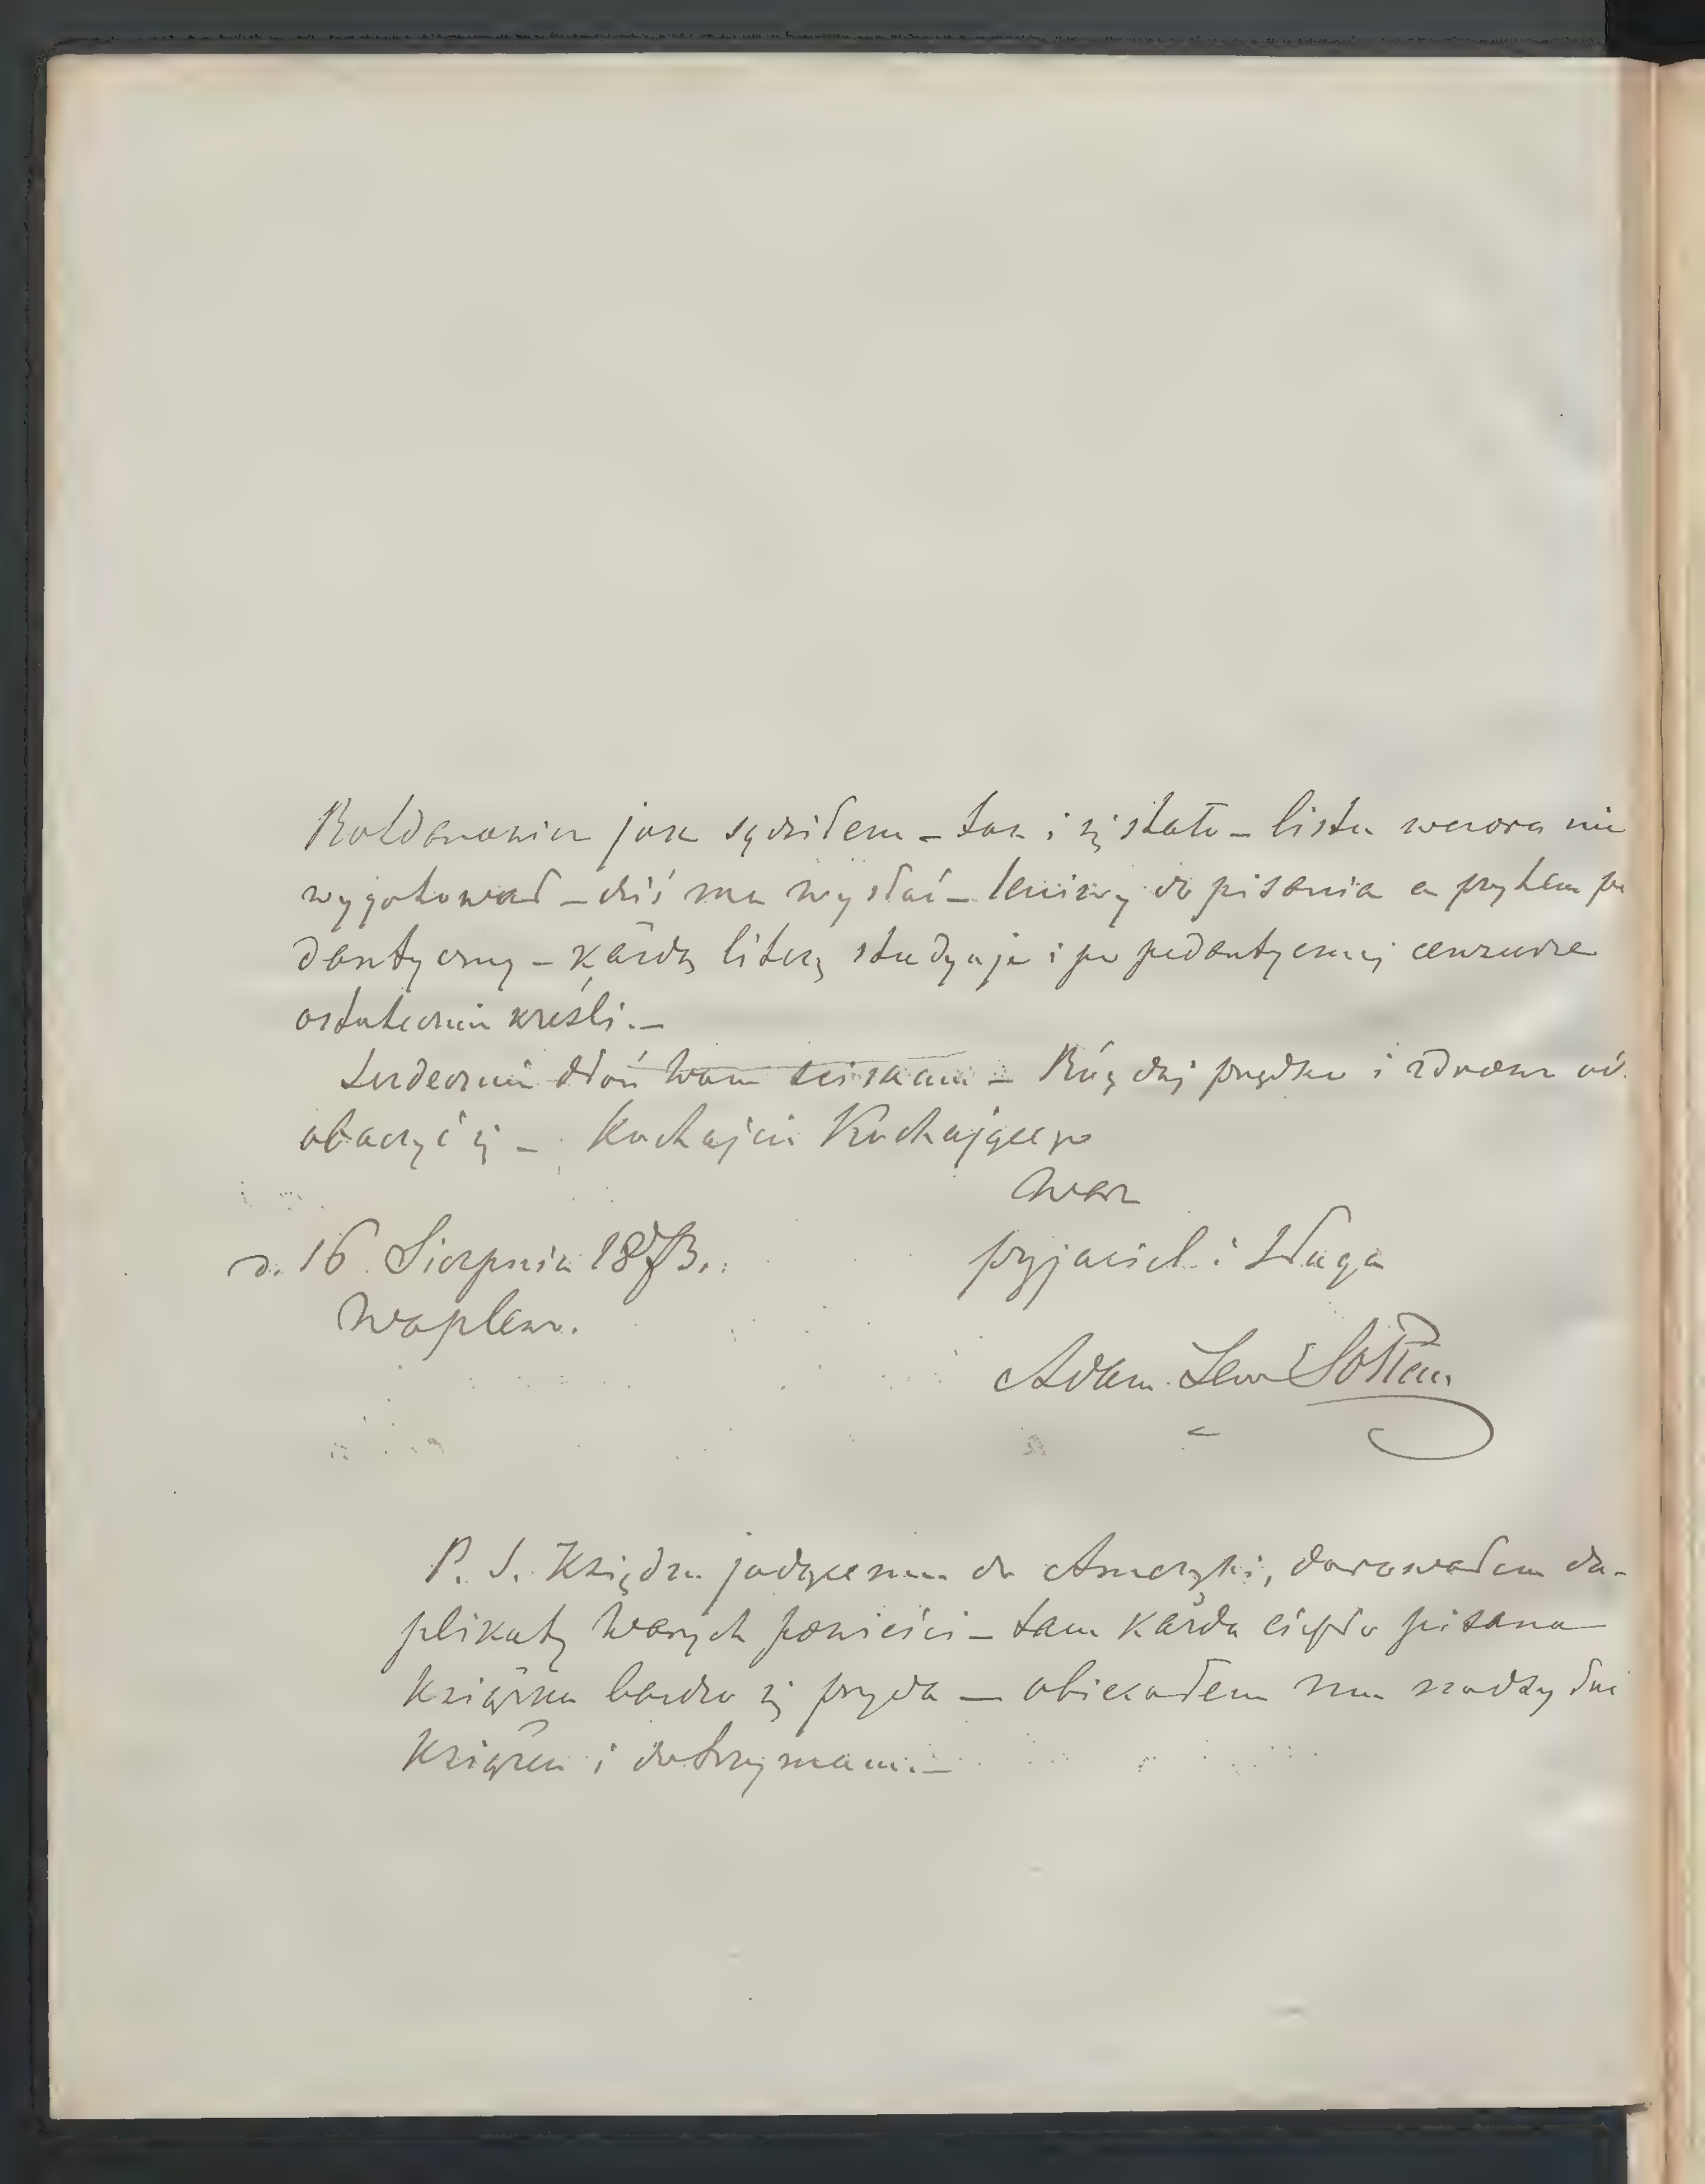 jak sądziłem – tak i się stało – listu wczora nie
wygotował – dziś ma wysłać – leniwy do pisania a przytem pe
dantyczny – każdą literę studyuje i po pedantycznej cenzurze
ostatecznie kreśli. –
Serdecznie dłoń Wam ściskam – Bóg daj prędko i zdrowo
obaczyć się – Kochajcie Kochającego
Was
przyjaciel i Sługa
d. 16 Sierpnia 1873.
Waplewo.
Adam Lew Sołtan
P. S. Księdzu jadącemu do Ameryki, darowałem du-
plikaty Waszych powieści – tam każda ciepło pisana
książka bardzo się przyda – obiecałem mu
książek i dotrzymam. –